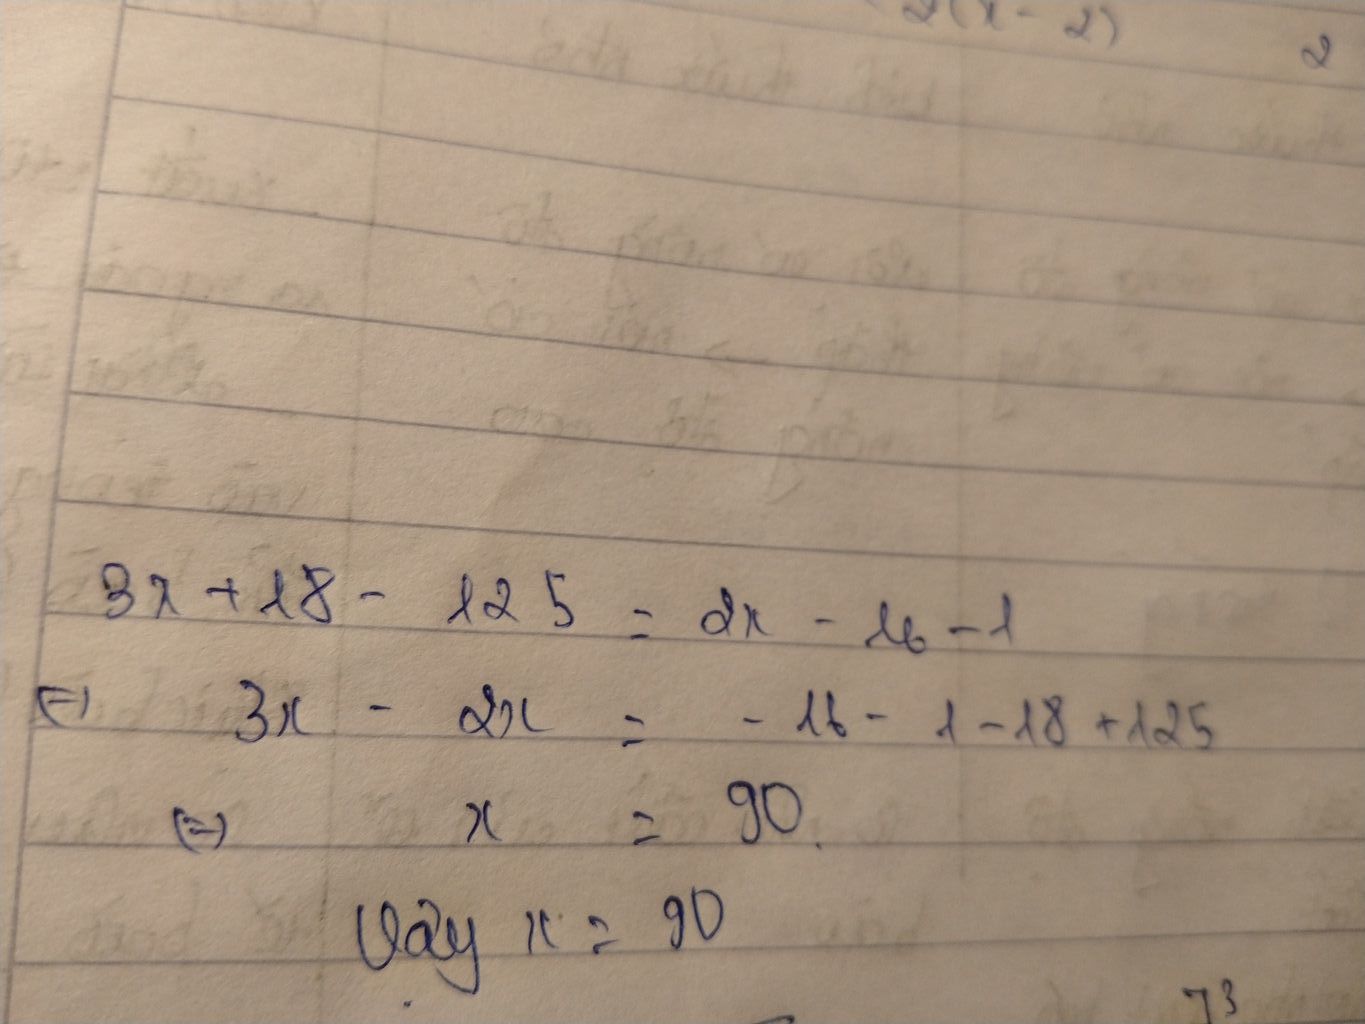 2(x - 2) 2
3x + 18 - 125 = 2x - 16 - 1
(=) 3x - 2x = - 16 - 1 - 18 + 125
(=) x = 90.
Vậy x = 90
73